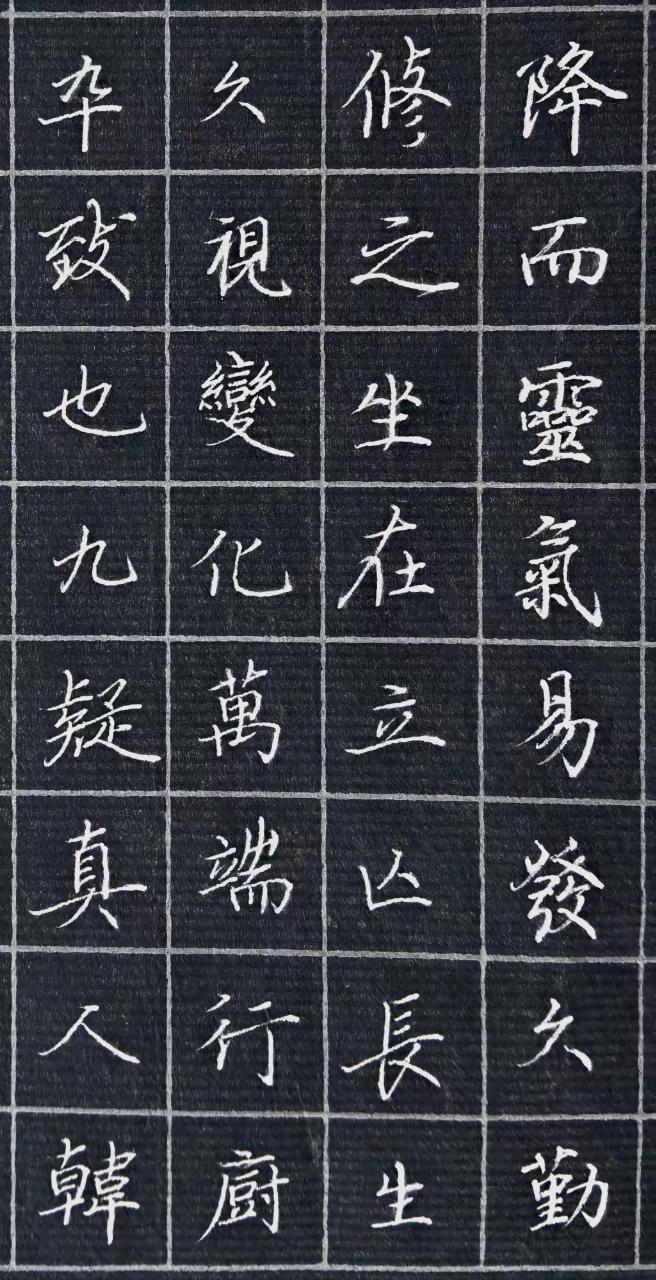 降而靈氣易發久勤
修之坐在立亾長生
久視變化萬端行廚
卆致也九疑真人韓